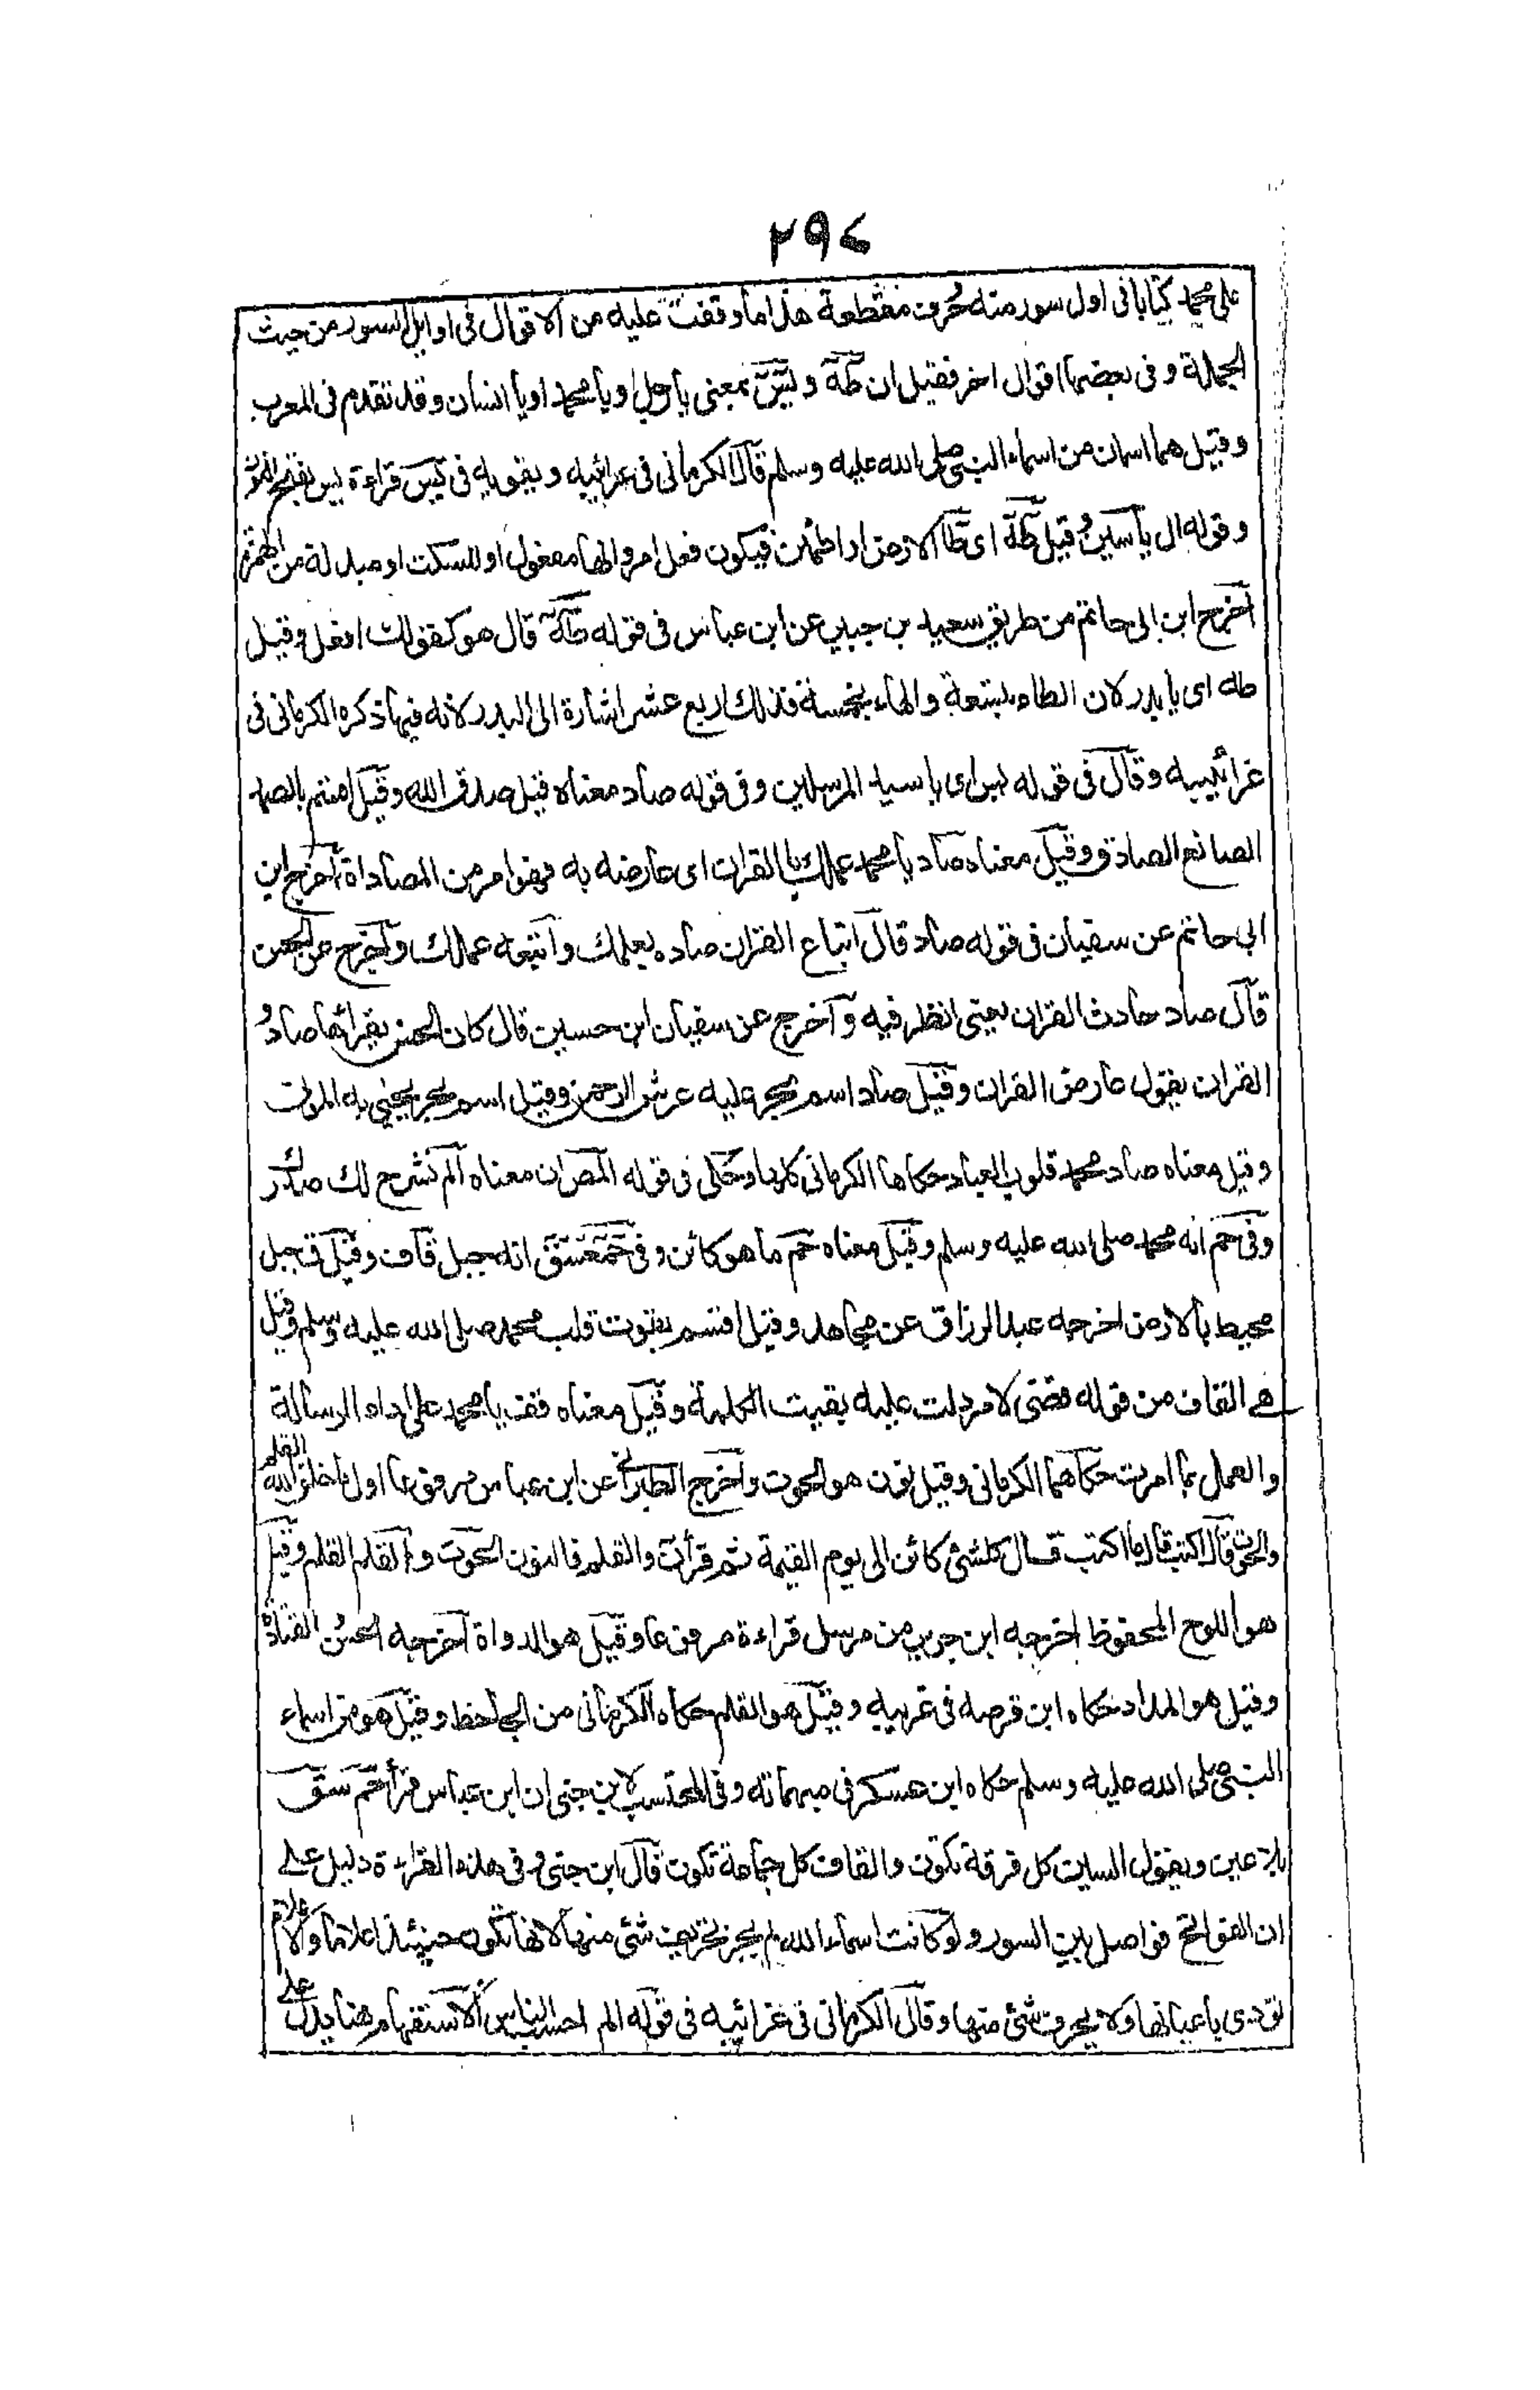 ٢٩٤
على محمد كتابا فى اول سور منه حرف مقطعة هذا ما وقفت عليه من الاقوال فى اوايل السور من حيث
الجملة و فى بعضها اقوال اخر فقيل ان طه و يس بمعنى يا رجل او يا محمد او يا انسان وقد تقدم فى المعرب
و قيل هما اسمان من اسماء النبى صلى الله عليه وسلم قال الكرمانى فى غرائبه و يقويه فى يس قراءة يس بفتح النون
و قوله ال ياسين و قيل طه اى طا الارض او اطمئن فيكون فعل امر و الها مفعول او للسكت او مبدلة من الهمزة
اخرج ابن ابى حاتم من طريق سعيد بن جبير عن ابن عباس فى قوله طه قال هو كقولك افعل و قيل
طه اى يا بدر لان الطاء بتسعة و الهاء بخمسة فذلك اربع عشر اشارة الى البدر لانه فيها ذكره الكرمانى فى
غرائبه و قال فى قوله يس اى يا سيد المرسلين و فى قوله صاد معناه قيل صدق الله و قيل اقسم بالصمد
الصانع الصادق و قيل معناه صاد يا محمد عملك بالقران اى عارضه به فهو امر من المصاداة اخرج ابن
ابى حاتم عن سفيان فى قوله صاد قال اتباع القران صاده بعلمك و اتبعه عملك و اخرج عن الحسن
قال صاد حادث القران يعنى انظر فيه و اخرج عن سفيان ابن حسين قال كان الحسن يقرائها صاد و
القران يقول عارض القران و قيل صاد اسم بحر عليه عرش الرحمن و قيل اسم بحر يحيى به الموتى
و قيل معناه صاد محمد قلوب العباد حكاها الكرمانى كلها و حكى فى قوله المص ان معناه الم نشرح لك صدرك
و فى حم انه محمد صلى الله عليه وسلم و قيل معناه حم ما هو كائن و فى حمعسق انه جبل قاف و قيل ق جبل
محيط بالارض اخرجه عبد الرزاق عن مجاهد و قيل اقسم بقوت قلب محمد صلى الله عليه وسلم و قيل
هى القاف من قوله قضى الامر دلت عليه بقيت الكلمة و قيل معناه قف يا محمد على اداء الرسالة
و العمل بما امرت حكاهما الكرمانى و قيل نون هو الحوت و اخرج الطبرانى عن ابن عباس مرفوعا اول ما خلق الله القلم
والحوت قال اكتب قال ما اكتب قال كلشئ كائن الى يوم القيمة ثم قرأن والقلم فالنون الحوت و القلم القلم و قيل
هو اللوح المحفوظ اخرجه ابن جرير من مرسل قراءة مرفوعا و قيل هو الدواة اخرجه الحسن القتادة
و قيل هو المداد حكاه ابن قرصه فى غريبه و قيل هو القلم حكاه الكرمانى من الجاحظ و قيل هو من اسماء
النبى صلى الله عليه وسلم حكاه ابن عسكر فى مبهماته و فى المحتسب لابن جنى ان ابن عباس قرأ حم سق
بلا عين و يقول السين كل فرقة تكون و القاف كل جماعة تكون قال ابن جنى و فى هذه القراءة دليل على
ان الفواتح فواصل بين السور و لو كانت اسماء الله لم يجز تحريف شئ منها لانها تكون حينئذ اعلاما و الاعلام
تودى باعيانها و لا يحرف شئ منها و قال الكرمانى فى غرائبه فى قوله الم احسب الناس الاستفهام هنا يدل على